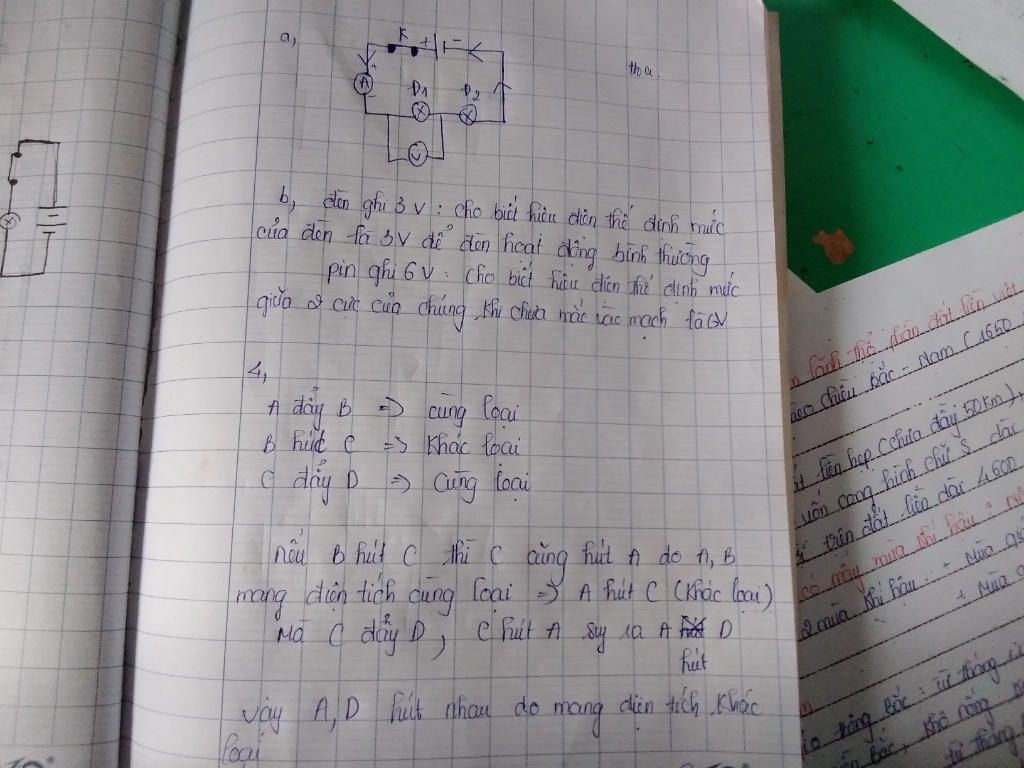 a,
K
+
-
+
A
Đ1
Đ2
V
b, đèn ghi 3V : cho biết hiệu điện thế định mức
của đèn là 3V để đèn hoạt động bình thường
pin ghi 6V : cho biết hiệu điện thế định mức
giữa 2 cực của chúng khi chưa mắc vào mạch là 6V
4,
A đẩy B => cùng loại
B hút C => khác loại
C đẩy D => cùng loại
nếu B hút C thì C cũng hút A do A, B
mang điện tích cùng loại => A hút C (khác loại)
Mà C đẩy D, C hút A suy ra A D
hút
vậy A, D hút nhau do mang điện tích khác
loại
lãnh thổ phần đất liền
theo chiều Bắc - Nam (1650
hẹp (chưa đầy 50km),
cong hình chữ S dài
trên đất liền dài 4600
khí hậu :
2 mùa khí hậu : + Mùa
+ Mùa
Bắc : từ tháng
Bắc, khô nóng
từ tháng